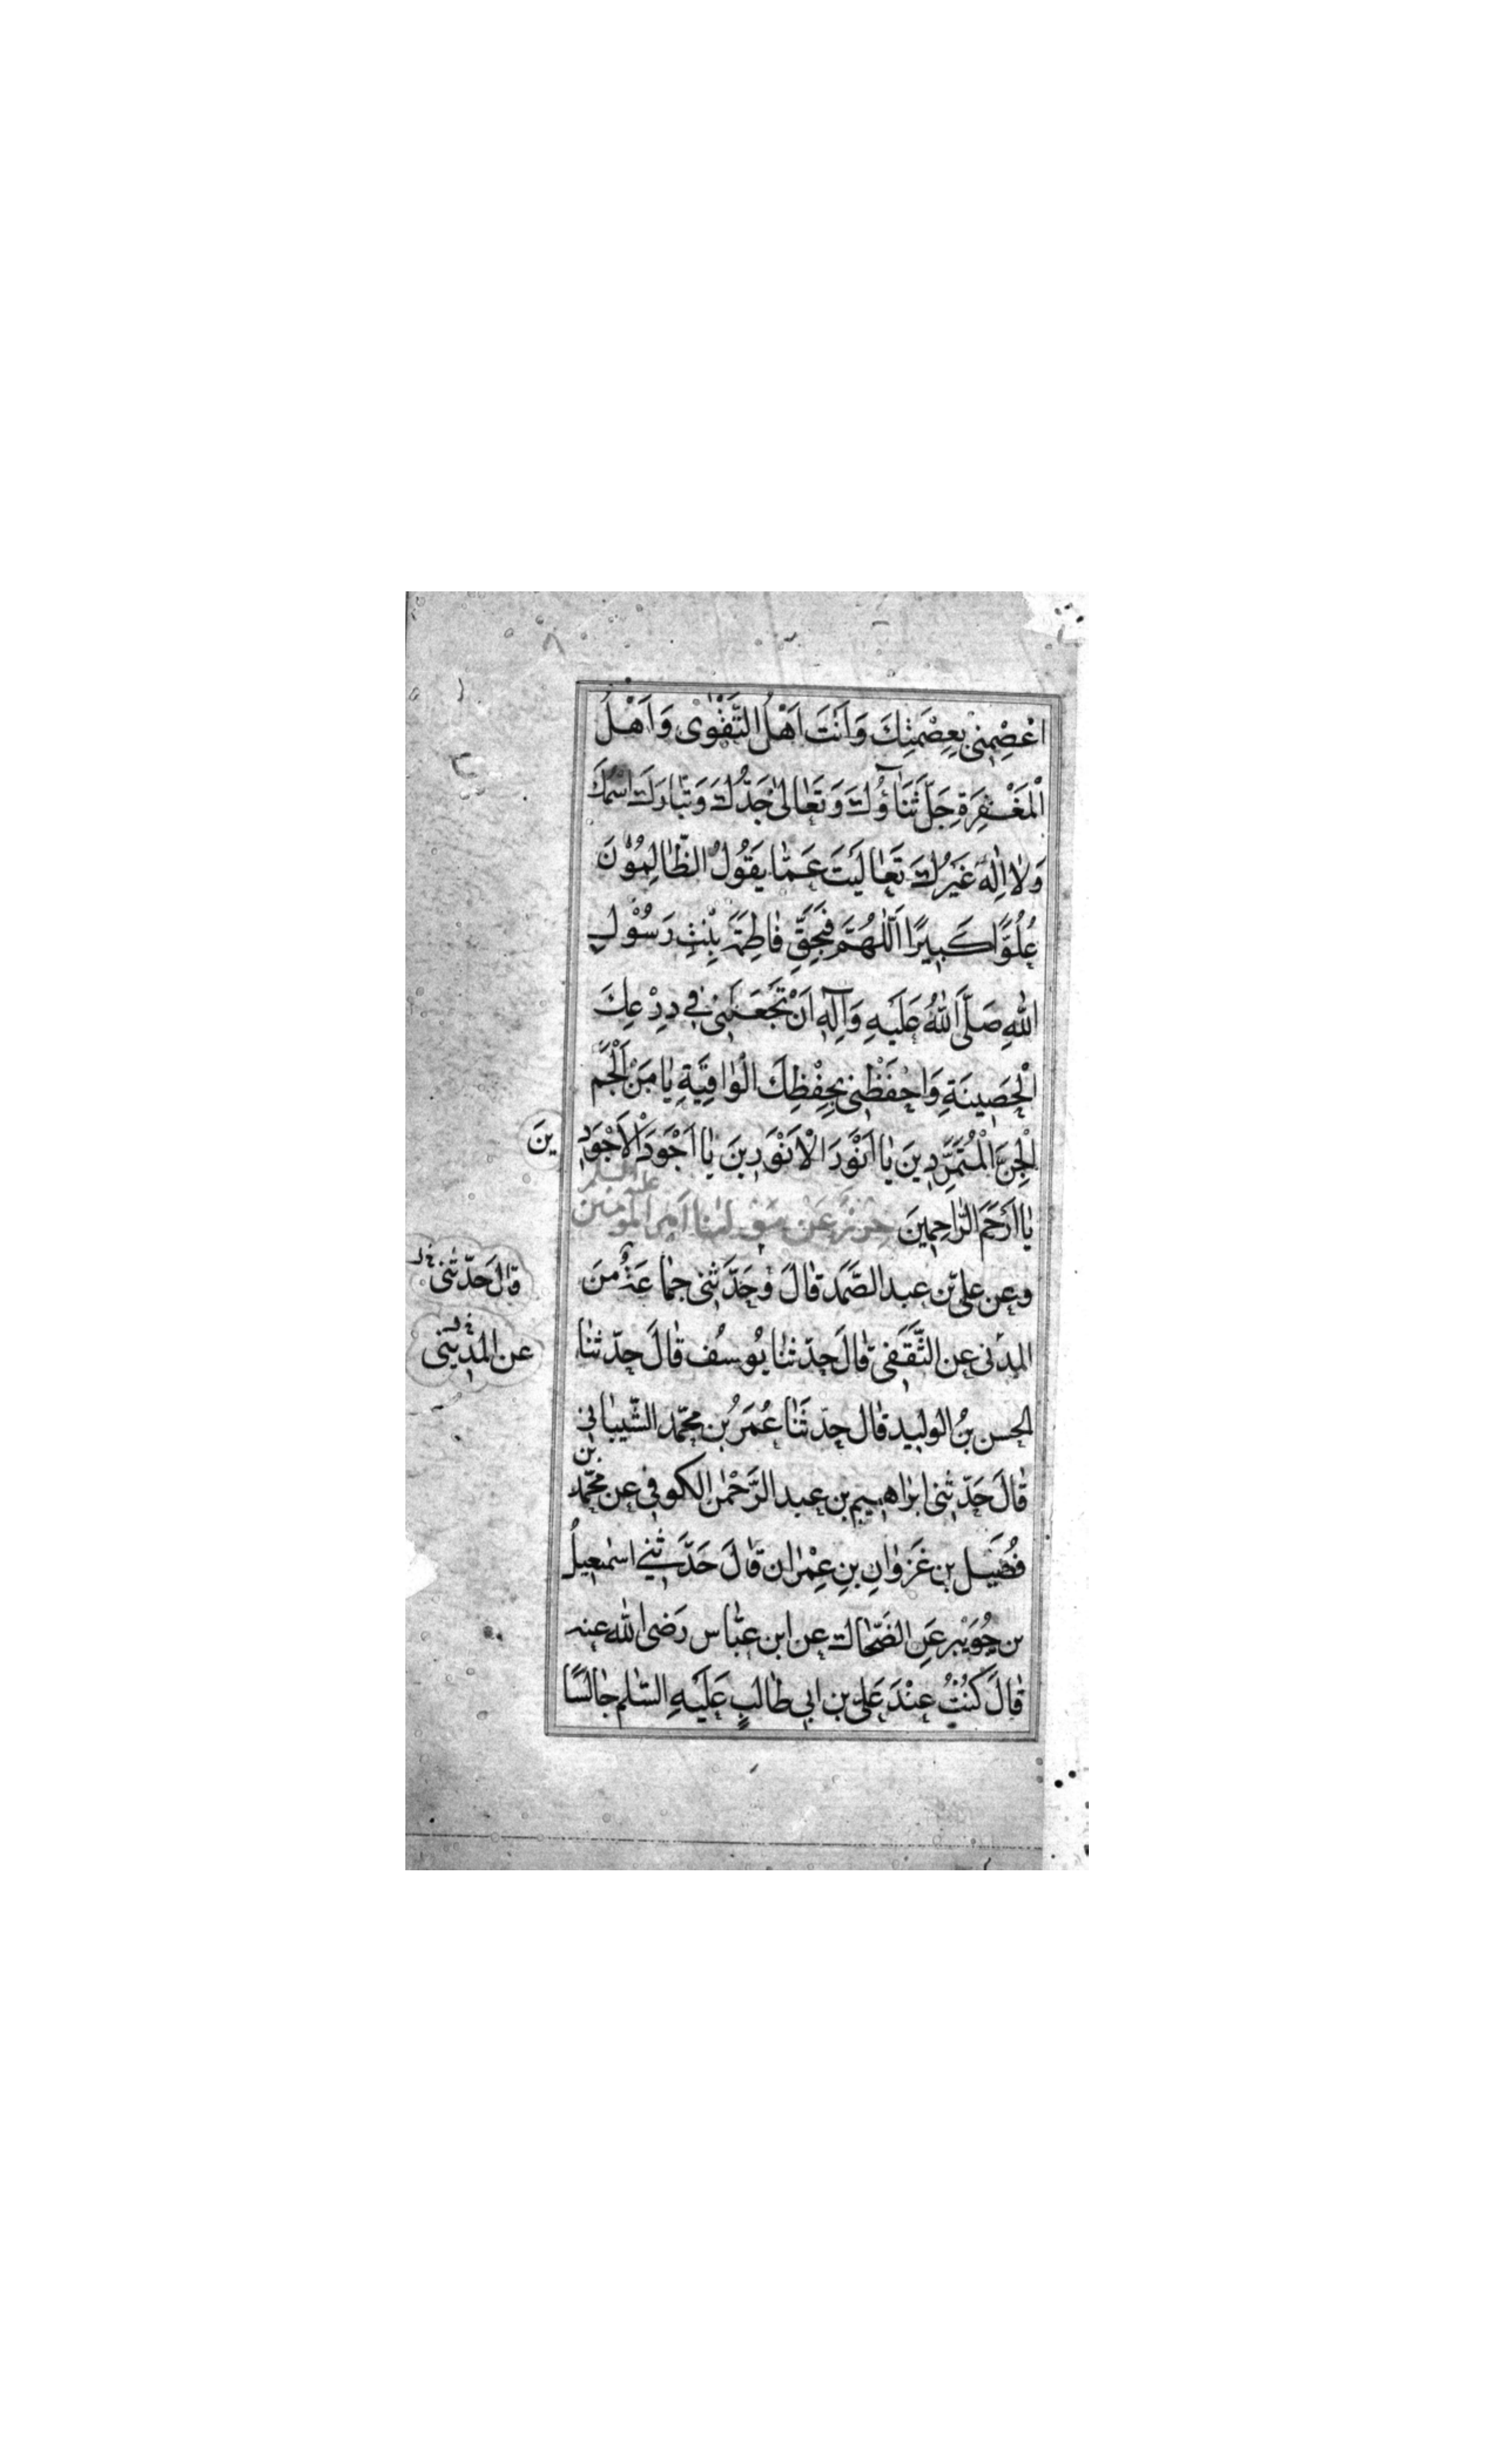 اعْصِمْنِي بِعِصْمَتِكَ وَاَنْتَ اَهْلُ التَّقْوٰى وَاَهْلُ
الْمَغْفِرَةِ جَلَّ ثَنَاؤُكَ وَتَعٰالىٰ جَدُّكَ وَتَبٰارَكَ اسْمُكَ
وَلٰا اِلٰهَ غَيْرُكَ تَعٰالَيْتَ عَمّٰا يَقُولُ الظّٰالِمُوْنَ
عُلُوًّا كَبِيرًا اَللّٰهُمَّ فَبِحَقِّ فٰاطِمَةَ بِنْتِ رَسُوْلِ
اللّٰهِ صَلَّى اللّٰهُ عَلَيْهِ وَآلِهِ اَنْ تَجْعَلَنِي فِي دِرْعِكَ
الْحَصِينَةِ وَاحْفَظْنِي بِحِفْظِكَ الْوٰاقِيَةِ يٰا مَنْ اَلْجَمَ
الْجِنَّ الْمُتَمَرِّدِينَ يٰا اَنْوَرَ الْاَنْوَرِينَ يٰا اَجْوَدَ الْاَجْوَدِ
ينَ
يٰا اَرْحَمَ الرّٰاحِمِينَ حِرْزٌ عَنْ مَوْلٰينا اَمِيرِ الْمُؤْمِنين
عليه السلم
وعن علي بن عبد الصَّمَد قٰالَ وَحَدَّثَنِي جمٰاعَةٌ مِنَ
قٰالَ حَدّثَني خ ل
المدَني عن الثَّقَفي قٰالَ حدّثنٰا يُوسُف قٰالَ حدّثنٰا
عن المديني خ ل
الحسن بنُ الوليد قٰال حدثَنٰا عُمَرُ بن محمّد الشَّيبٰاني
قٰالَ حَدّثني ابرٰاهيم بن عبد الرَّحْمٰن الكوفي عن محمّد بن
فُضَيْل بن غَزوٰانِ بنِ عِمْرٰان قٰالَ حَدَّثَنِي اسمٰعيلُ
بن جُوَيْبر عَنِ الضَحّٰاك عن ابن عبّٰاس رَضى اللّٰه عنه
قٰالَ كُنْتُ عِنْدَ عَلِيّ بن ابي طٰالبٍ عَلَيْهِ السّلٰم جٰالسًا